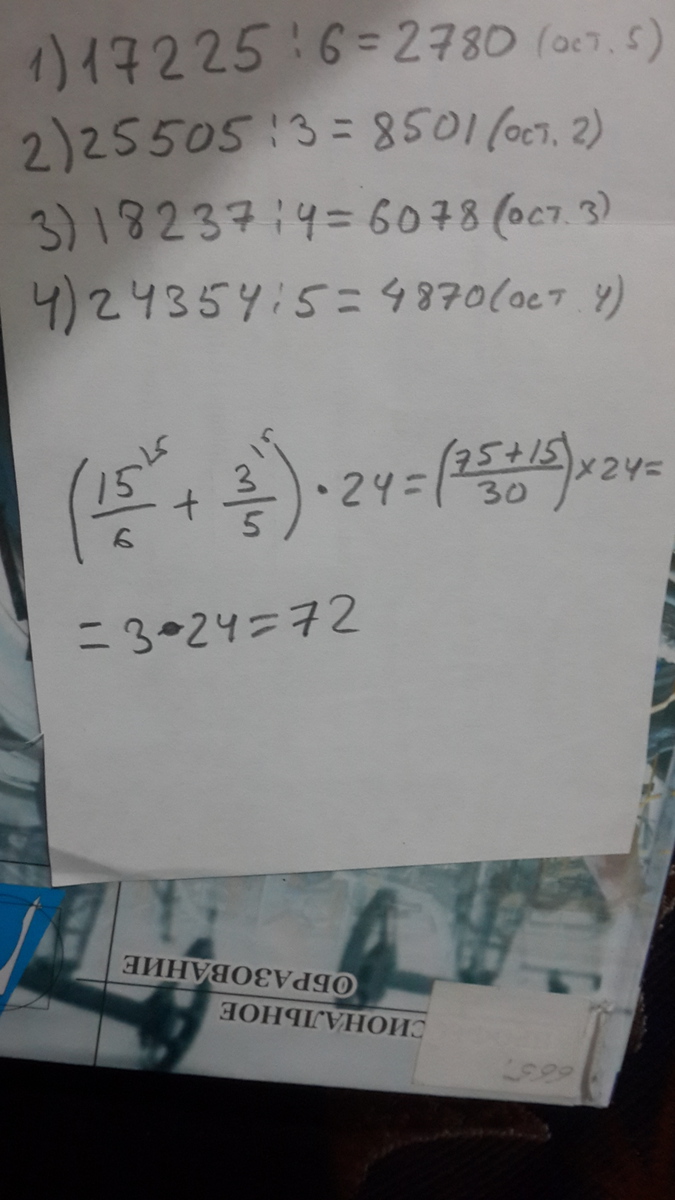 1) 17225 : 6 = 2780 (ост. 5)
2) 25505 : 3 = 8501 (ост. 2)
3) 18237 : 4 = 6078 (ост. 3)
4) 24354 : 5 = 4870 (ост. 4)
(15/6 + 3/5) · 24 = (75+15/30) × 24 =
= 3 · 24 = 72
ОБРАЗОВАНИЕ
СИОНАЛЬНОЕ